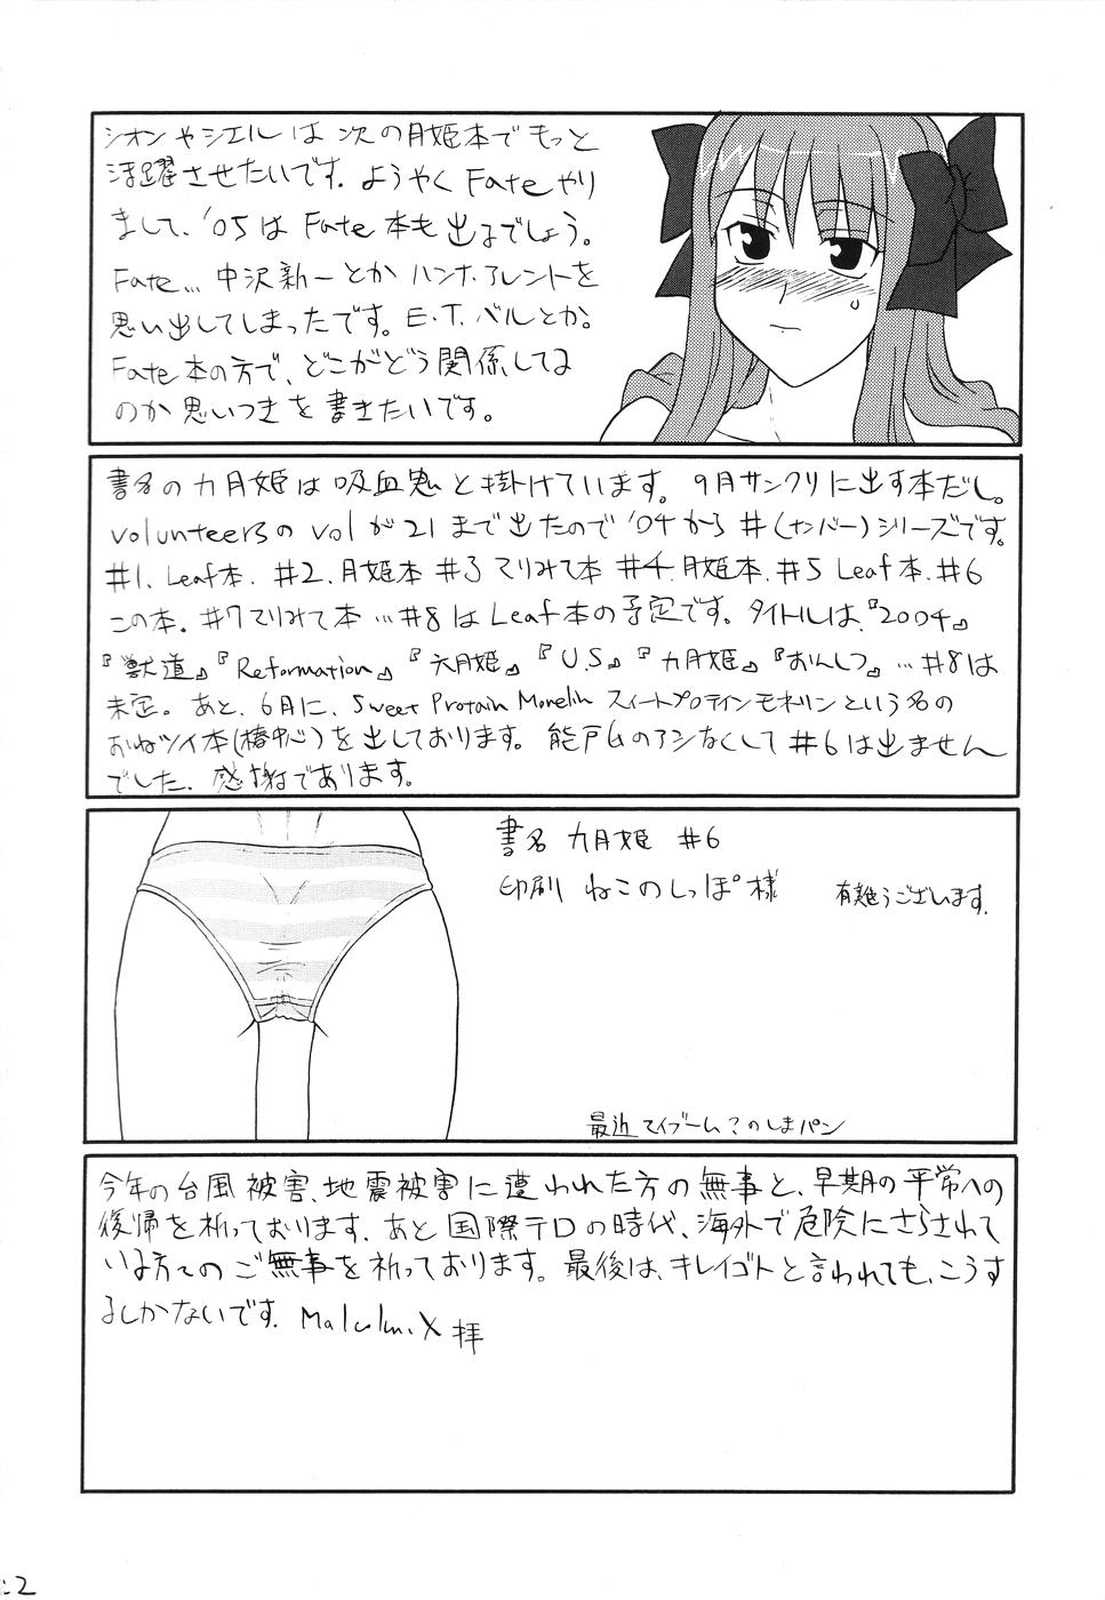 シオンやシエルは次の月姫本でもっと
活躍させたいです。ようやくFateやり
まして、'05はFate本も出るでしょう。
Fate…中沢新一とかハンナ・アレントを
思い出してしまったです。E.T.ベルとか。
Fate本の方で、どこがどう関係してる
のか思いつきを書きたいです。
書名の九月姫は吸血鬼と掛けています。9月サンクリに出す本だし。
volunteersのvolが21まで出たので'04から#(ナンバー)シリーズです。
#1.Leaf本.#2.月姫本#3マリみて本#4.月姫本.#5Leaf本.#6
この本.#7マリみて本…#8はLeaf本の予定です。タイトルは、『2004』
『獣道』『Reformation』『六月姫』『U.S』『九月姫』『おんしつ』…#8は
未定。あと、6月に、Sweet Protain Monelinスィートプロテインモネリンという名の
おねツイ本(椿中心)を出しております。能戸くんのアシなくして#6は出ません
でした.感謝であります。
書名 九月姫 #6
印刷 ねこのしっぽ様 有難うございます.
最近マイブーム?のしまパン
今年の台風被害、地震被害に遭われた方の無事と、早期の平常への
復帰を祈っております.あと国際テロの時代、海外で危険にさらされて
いる方々のご無事を祈っております。最後は、キレイゴトと言われても、こうす
るしかないです. Malcolm.X 拝
:2